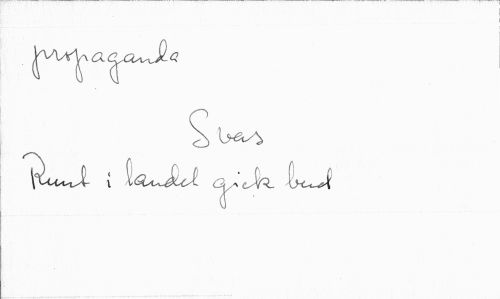 propaganda
Svas
Runt i landet gick bud